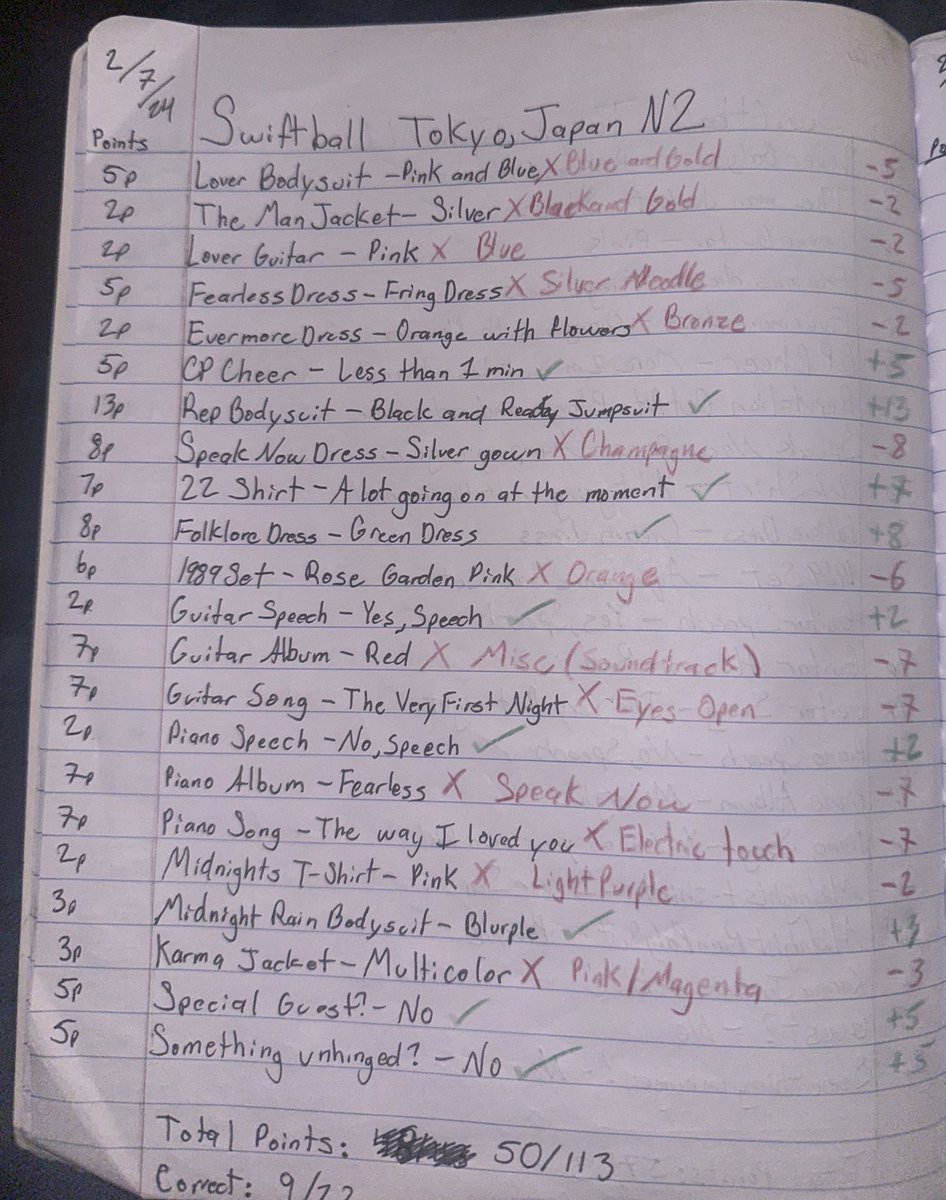 2/7/24
Swiftball Tokyo, Japan N2
Points
5p Lover Bodysuit - Pink and Blue X Blue and Gold -5
2p The Man Jacket - Silver X Black and Gold -2
2p Lover Guitar - Pink X Blue -2
5p Fearless Dress - Fring Dress X Silver Noodle -5
2p Evermore Dress - Orange with flowers X Bronze -2
5p CP Cheer - Less than 1 min ✓ +5
13p Rep Bodysuit - Black and Red Jumpsuit ✓ +13
8p Speak Now Dress - Silver gown X Champagne -8
7p 22 Shirt - A lot going on at the moment ✓ +7
8p Folklore Dress - Green Dress ✓ +8
6p 1989 Set - Rose Garden Pink X Orange -6
2p Guitar Speech - Yes, Speech ✓ +2
7p Guitar Album - Red X Misc (Soundtrack) -7
7p Guitar Song - The Very First Night X Eyes Open -7
2p Piano Speech - No, Speech ✓ +2
7p Piano Album - Fearless X Speak Now -7
7p Piano Song - The way I loved you X Electric touch -7
2p Midnights T-Shirt - Pink X Light Purple -2
3p Midnight Rain Bodysuit - Blurple ✓ +3
3p Karma Jacket - Multicolor X Pink/Magenta -3
5p Special Guest? - No ✓ +5
5p Something unhinged? - No ✓ +5
Total Points: 50/113
Correct: 9/22